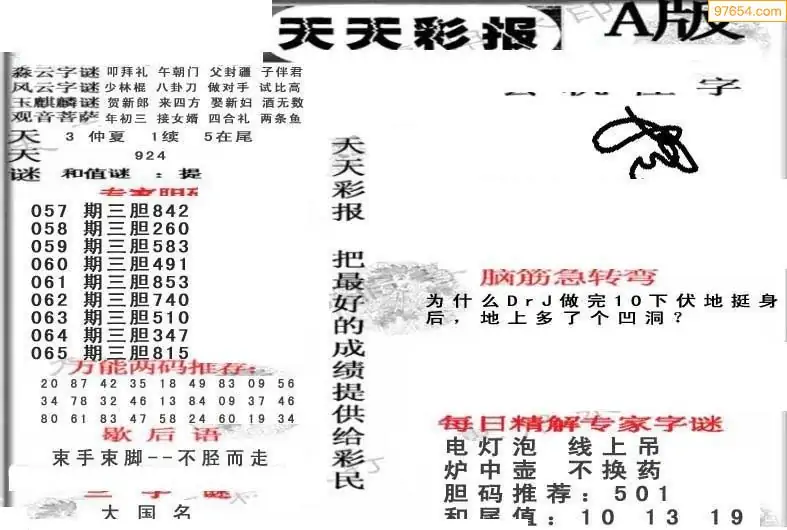 97654.com
天天彩报
A版
森云字谜 叩拜礼 午朝门 父封疆 子伴君
风云字谜 少林棍 八卦刀 做对手 试比高
玉麒麟谜 贺新郎 来四方 娶新妇 酒无数
观音菩萨 年初三 接女婿 四合礼 两条鱼
天 3 仲夏 1续 5在尾
天 924
谜 和值谜 : 提
专家胆码
057 期三胆842
058 期三胆260
059 期三胆583
060 期三胆491
061 期三胆853
062 期三胆740
063 期三胆510
064 期三胆347
065 期三胆815
万能两码推荐:
20 87 42 35 18 49 83 09 56
34 78 32 46 13 84 09 37 46
80 61 83 47 58 24 60 19 34
歇后语
束手束脚--不胫而走
三字谜
大国名
天天彩报 把最好的成绩提供给彩民
字
脑筋急转弯
为什么DrJ做完10下伏地挺身
后，地上多了个凹洞？
每日精解专家字谜
电灯泡 线上吊
炉中壶 不换药
胆码推荐: 501
和尾值: 10 13 19